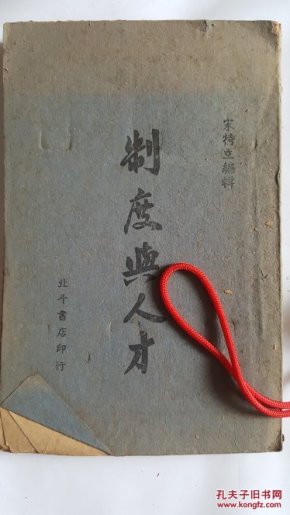 宋特立編輯
制度與人才
北斗書店印行
孔夫子旧书网